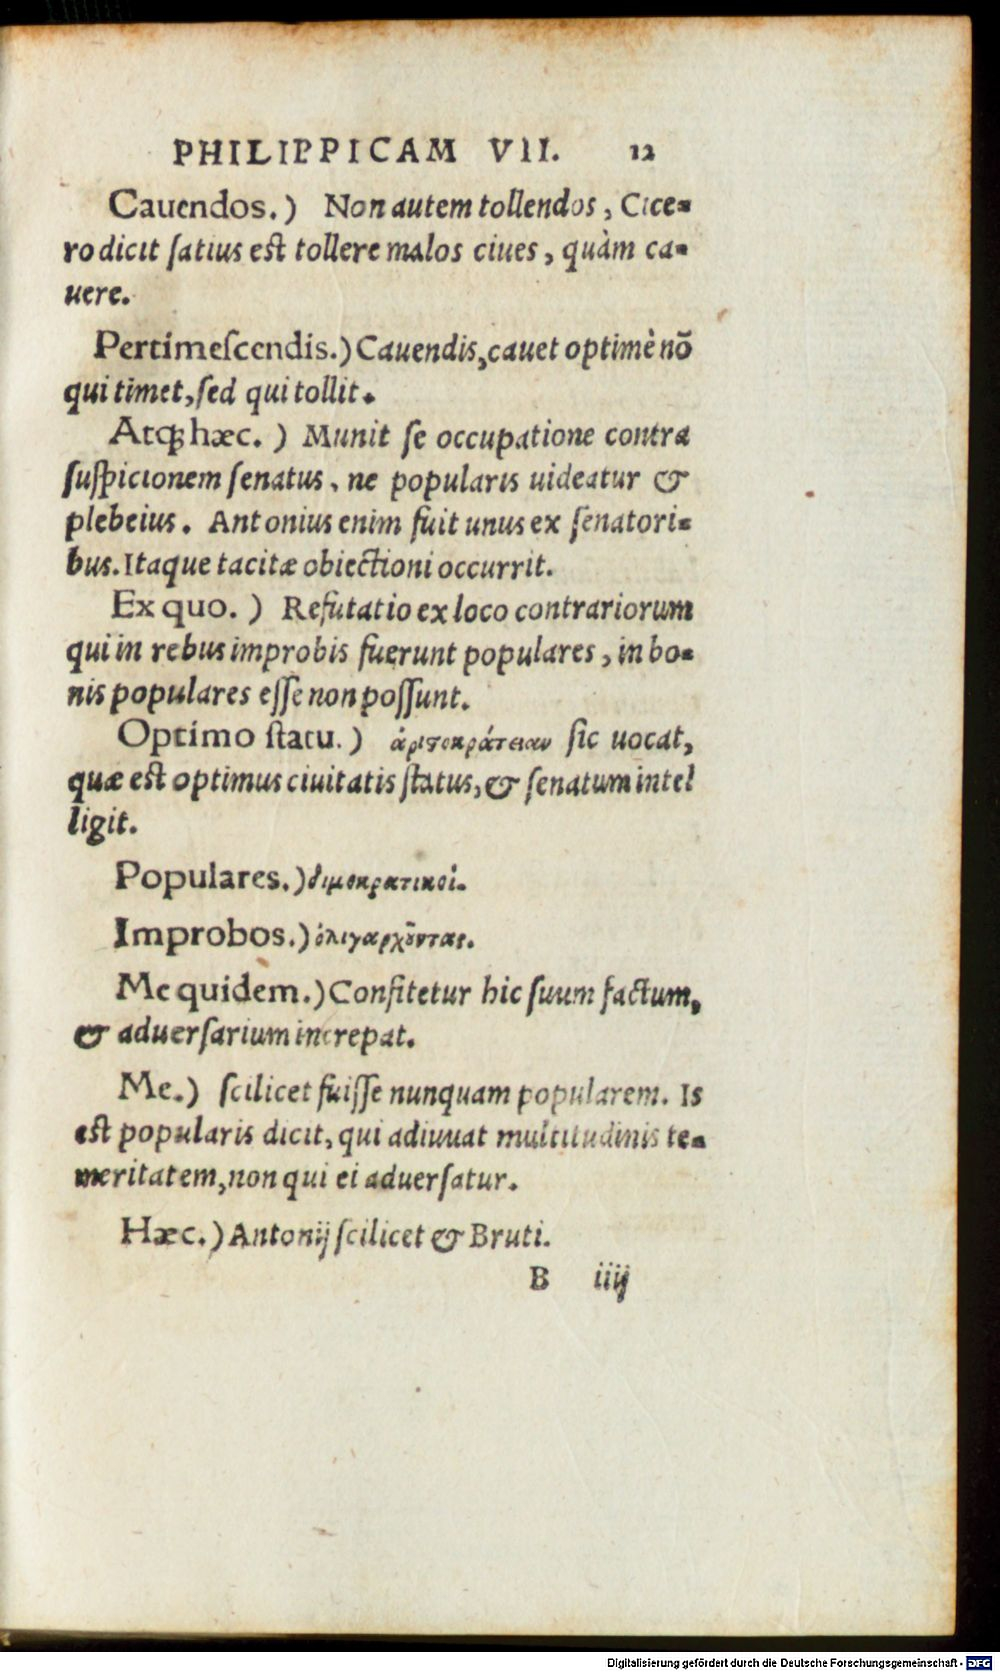 PHILIPPICAM VII. 12
Cauendos.) Non autem tollendos, Cice-
ro dicit satius est tollere malos ciues, quàm ca-
uere.
Pertimescendis.) Cauendis, cauet optimè nõ
qui timet, sed qui tollit.
Atq; hæc.) Munit se occupatione contra
suspicionem senatus, ne popularis uideatur &
plebeius. Antonius enim fuit unus ex senatori-
bus. Itaque tacitæ obiectioni occurrit.
Ex quo.) Refutatio ex loco contrariorum
qui in rebus improbis fuerunt populares, in bo-
nis populares esse non possunt.
Optimo statu.) ἀριστοκράτειαν sic uocat,
quæ est optimus ciuitatis status, & senatum intel
ligit.
Populares.) διμοκρατικοί.
Improbos.) ὀλιγαρχοῦντας.
Me quidem.) Confitetur hic suum factum,
& aduersarium increpat.
Me.) scilicet fuisse nunquam popularem. Is
est popularis dicit, qui adiuuat multitudinis te-
meritatem, non qui ei aduersatur.
Hæc.) Antonij scilicet & Bruti.
B iiij
Digitalisierung gefördert durch die Deutsche Forschungsgemeinschaft - DFG